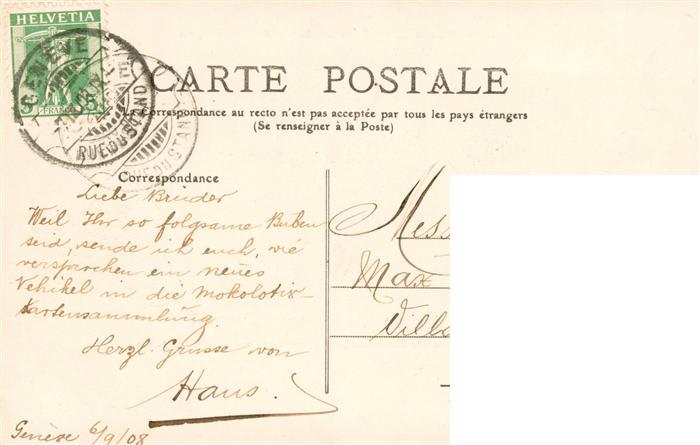 HELVETIA
5 FRANCO
GENÈVE
RUE DU STAND
CARTE POSTALE
Correspondance au recto n'est pas acceptée par tous les pays étrangers
(Se renseigner à la Poste)
Correspondance
Liebe Brüder
Weil Ihr so folgsame Buben
seid, sende ich euch, wie
versprochen ein neues
Vehikel in die Mokolotiv-
kartensammlung.
Herzl. Grüsse von
Hans.
Genève 6/9/08
Mess
Max
Villa